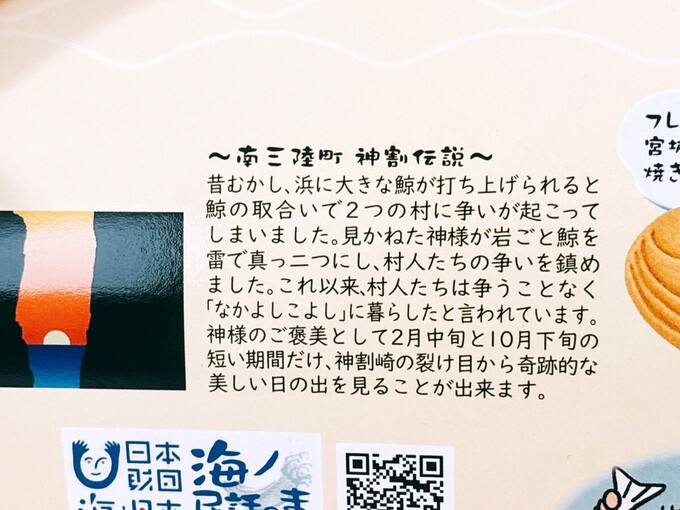 〜南三陸町 神割伝説〜
昔むかし、浜に大きな鯨が打ち上げられると
鯨の取合いで２つの村に争いが起こって
しまいました。見かねた神様が岩ごと鯨を
雷で真っ二つにし、村人たちの争いを鎮め
ました。これ以来、村人たちは争うことなく
「なかよしこよし」に暮らしたと言われています。
神様のご褒美として2月中旬と10月下旬の
短い期間だけ、神割崎の裂け目から奇跡的な
美しい日の出を見ることが出来ます。
フレ
宮城
焼き
日本
財団
海ノ